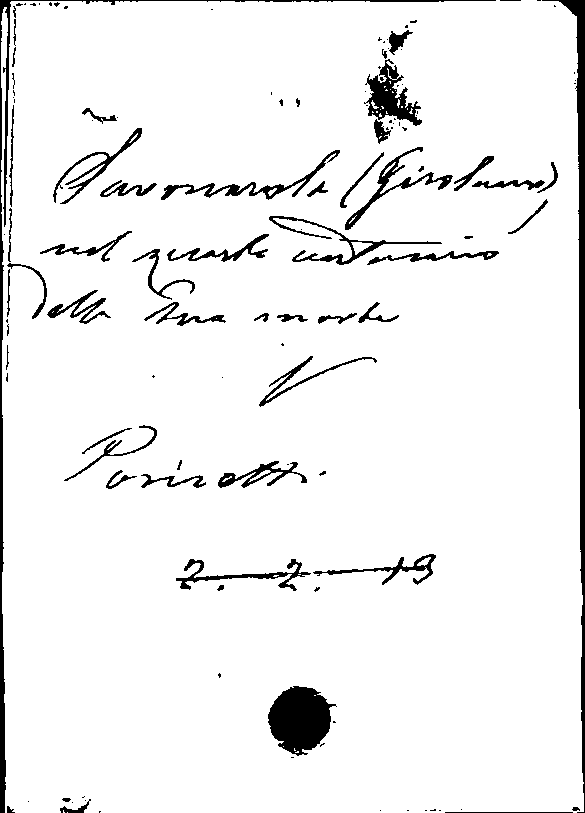 Savonarola (Girolamo)
nel quarto centenario
della sua morte
V
2. 2. 19